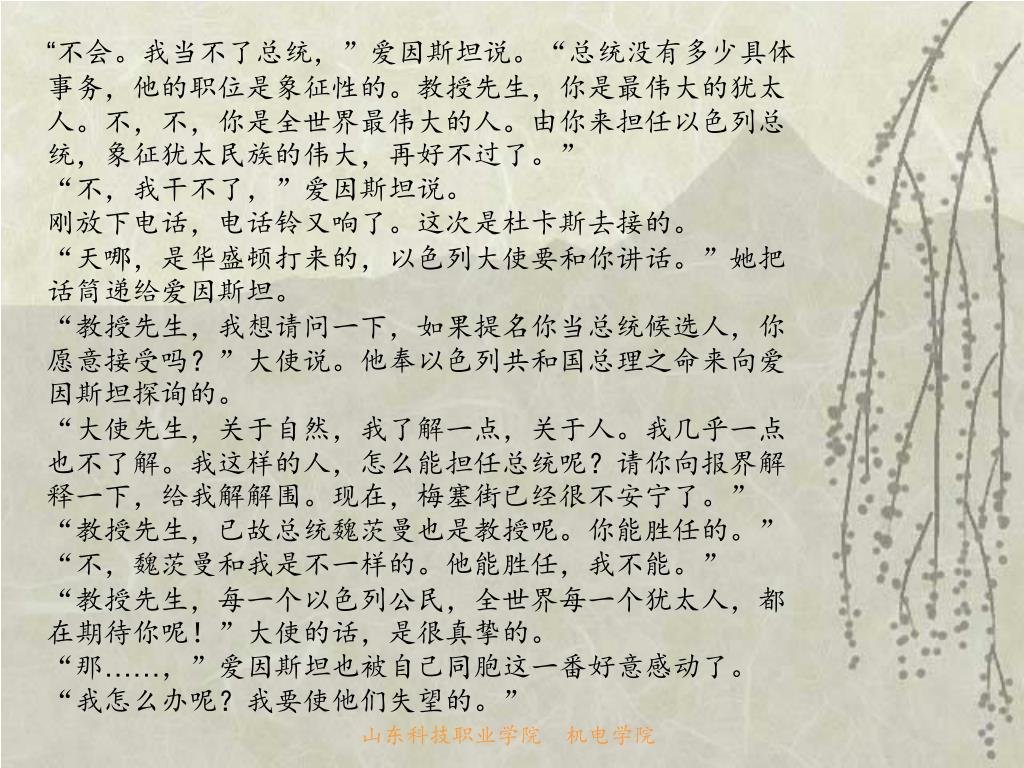 “不会。我当不了总统，”爱因斯坦说。“总统没有多少具体
事务，他的职位是象征性的。教授先生，你是最伟大的犹太
人。不，不，你是全世界最伟大的人。由你来担任以色列总
统，象征犹太民族的伟大，再好不过了。”
“不，我干不了，”爱因斯坦说。
刚放下电话，电话铃又响了。这次是杜卡斯去接的。
“天哪，是华盛顿打来的，以色列大使要和你讲话。”她把
话筒递给爱因斯坦。
“教授先生，我想请问一下，如果提名你当总统候选人，你
愿意接受吗？”大使说。他奉以色列共和国总理之命来向爱
因斯坦探询的。
“大使先生，关于自然，我了解一点，关于人。我几乎一点
也不了解。我这样的人，怎么能担任总统呢？请你向报界解
释一下，给我解解围。现在，梅塞街已经很不安宁了。”
“教授先生，已故总统魏茨曼也是教授呢。你能胜任的。”
“不，魏茨曼和我是不一样的。他能胜任，我不能。”
“教授先生，每一个以色列公民，全世界每一个犹太人，都
在期待你呢！”大使的话，是很真挚的。
“那……，”爱因斯坦也被自己同胞这一番好意感动了。
“我怎么办呢？我要使他们失望的。”
山东科技职业学院 机电学院